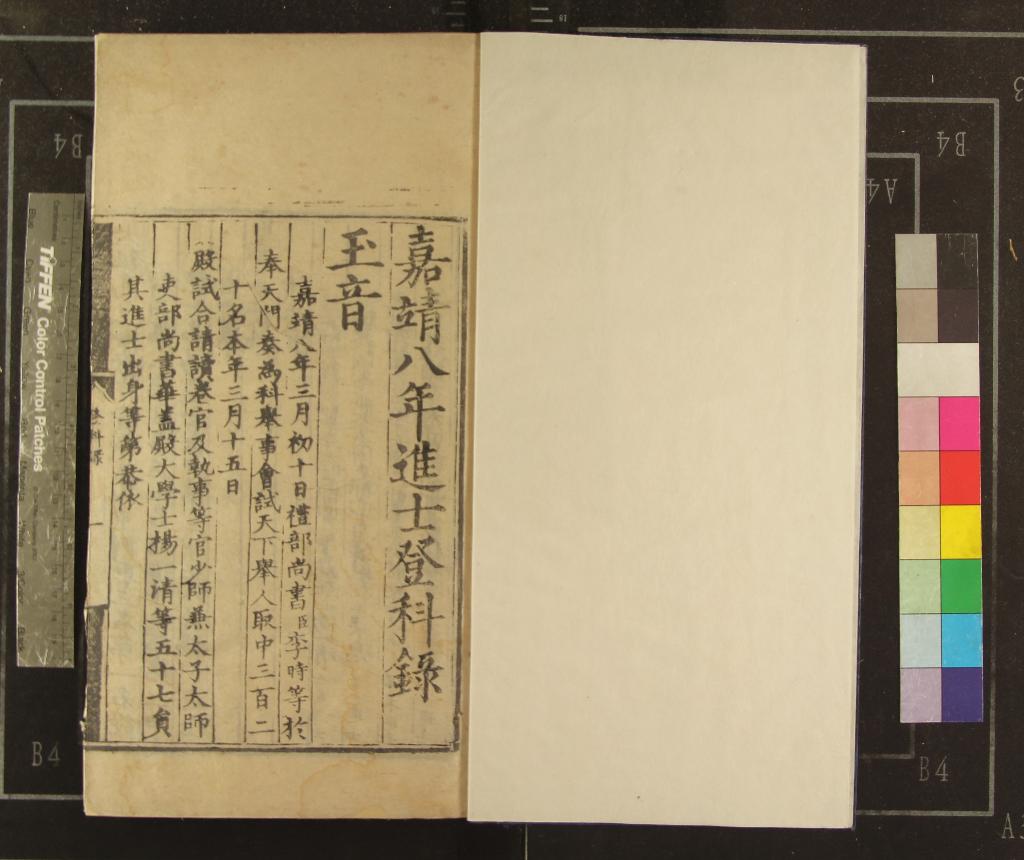 嘉靖八年進士登科錄
玉音
嘉靖八年三月初十日禮部尚書臣李時等於
奉天門奏為科舉事會試天下舉人取中三百二
十名本年三月十五日
殿試合請讀卷官及執事等官少師兼太子太師
吏部尚書華蓋殿大學士楊一清等五十七員
其進士出身等第恭依
科錄
一
TIFFEN Color Control Patches
B4
B4
B4
B4
A4